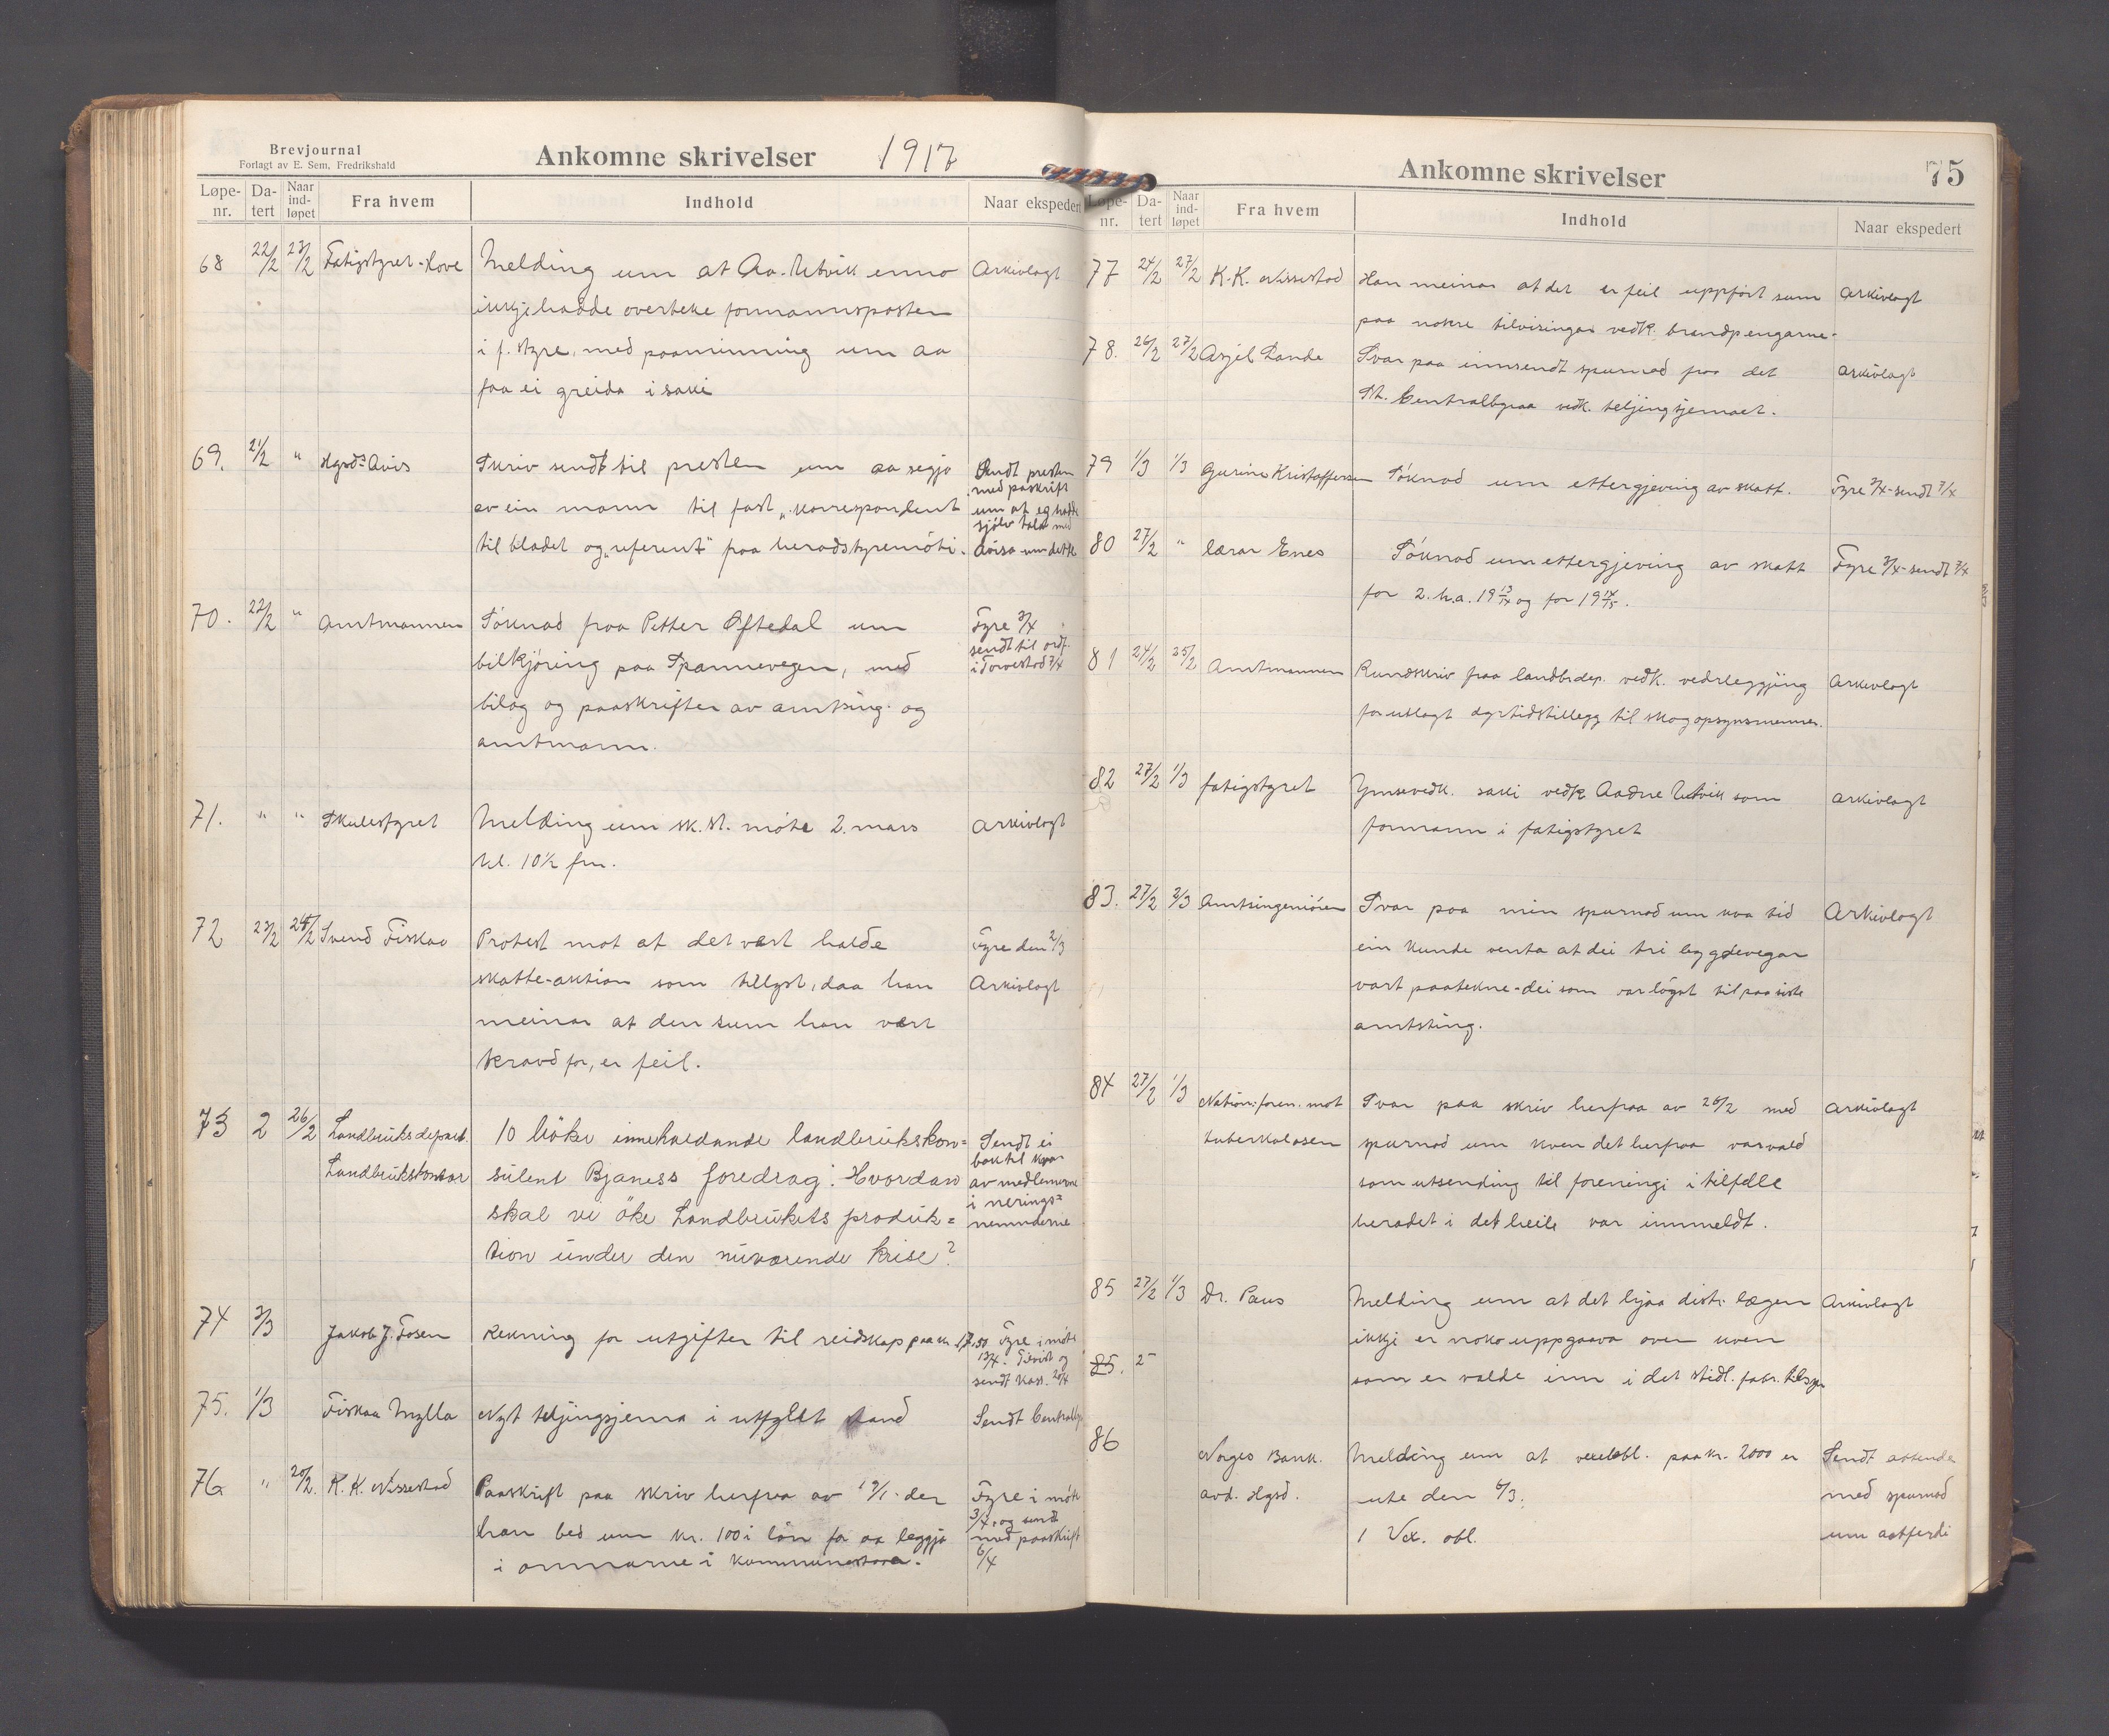 Brevjournal
Forlagt av E. Sem, Fredrikshald
Ankomne skrivelser 1917
Løpe-nr. Da-tert Naar ind-løpet Fra hvem Indhold Naar ekspedert
68 22/2 23/2 Fatigstyret Melding um at Aa. Utvik enno Arkivlagt
ikkje hadde overteke formannsposten
i f. styre, med paaminning um aa
faa ei greida i saki
69. 21/2 " Hgsds Avis Skriv sendt til presten um aa segja Sendt presten
med paskrift
av ein mann til fast „korrespondent um at eg hadde
sjølv tala med
til bladet og „referent" fraa heradstyremöti. Avisa um dette
70. 22/2 " Amtmannen Söknad fraa Petter Øftedal um Fyre 3/4
sendt til ordf.
bilkjöring paa Spannevegen, med i Torvestad 7/4
bilag og paaskrifter av amtsing. og
amtmann.
71. " " Skulestyret Melding um sk. st. möte 2. mars Arkivlagt
kl. 10½ fm.
72 23/2 Svend Fiskaa Protest mot at det vert halde Fyre den 2/3
skatte-auktion som tillyst, daa han Arkivlagt
meinar at den sum han vert
kravd for, er feil.
73 2 26/2 Landbruksdepart. 10 böker innehaldande landbrukskon= Sendt ei
bok til kvar
Landbrukskontor sulent Bjaness foredrag: Hvordan av medlemerne
i nerings=
skal vi öke Landbrukets produk= nemnderne
tion under den nuværende krise?
74 3/3 Jakob J. Fosen Rekning for utgifter til reidskap paa kr. 17,50 Fyre i möte
13/4. Tilvist og
sendt kass. 20/4
75. 1/3 Fiskaa Mylla Nyt teljingsjema i utfyllt stand Sendt Centralby.
76 " 20/2. K. K. Nissestad Paaskrift paa skriv herfraa av 19/1. der Fyre i möte
3/4. og sendt
han bed um kr. 100 i lön for aa leggja med paaskrift
i omnarne i kommunestova. 6/4
Ankomne skrivelser 75
Løpe-nr. Da-tert Naar ind-løpet Fra hvem Indhold Naar ekspedert
77 24/2 27/2 K. K. Nissestad Han meinar at det er feil uppfört sum Arkivlagt
paa nokre tilvisingar vedk. brandpengarne.
78. 26/2 27/2 Asjel Lande Svar paa innsendt spurnad fraa det Arkivlagt
St. Centralbyraa vedk. teljingsjemaet.
79 1/3 1/3 Gurine Kristoffersen Söknad um ettergjeving av skatt. Fyre 3/4 - sendt 7/4
80 27/2 " lærar Enes Söknad um ettergjeving av skatt Fyre 3/4 - sendt 7/4
for 2. h.a. 19 13/14 og for 19 14/15.
81 24/2 25/2 Amtmannen Rundskriv fraa landbr.dep. vedk. vederleggjing Arkivlagt
for utlagt dyrtidstillegg til skogopsynsmennar.
82 27/2 1/3 fatigstyret Ymse vedk. saki vedk Aadne Utvik som Arkivlagt
formann i fatigstyret
83. 27/2 3/3 Amtsingeniören Svar paa min spurnad um kva tid Arkivlagt
ein kunde venta at dei tri bygdevegar
vart paatekne - dei som var lögnt til paa siste
amtsting.
84 27/2 1/3 Nation: foren. mot Svar paa skriv herfraa av 26/2 med Arkivlagt
tuberkulosen spurnad um kven det herfraa var vald
som utsending til foreningi i tilfelle
heradet i det heile var innmeldt.
85 27/2 1/3 Dr. Paus Melding um at det hjaa distr. lægen Arkivlagt
ikkje er noko uppgaava over kven
85.
som er valde inn i det stedl. fabr. tilsyn
86 Norges Bank. Melding um at vexelobl. paa kr. 2000 er Sendt attende
avd. Hgsd. ute den 6/3. med spurnad
1 Vex. obl. um